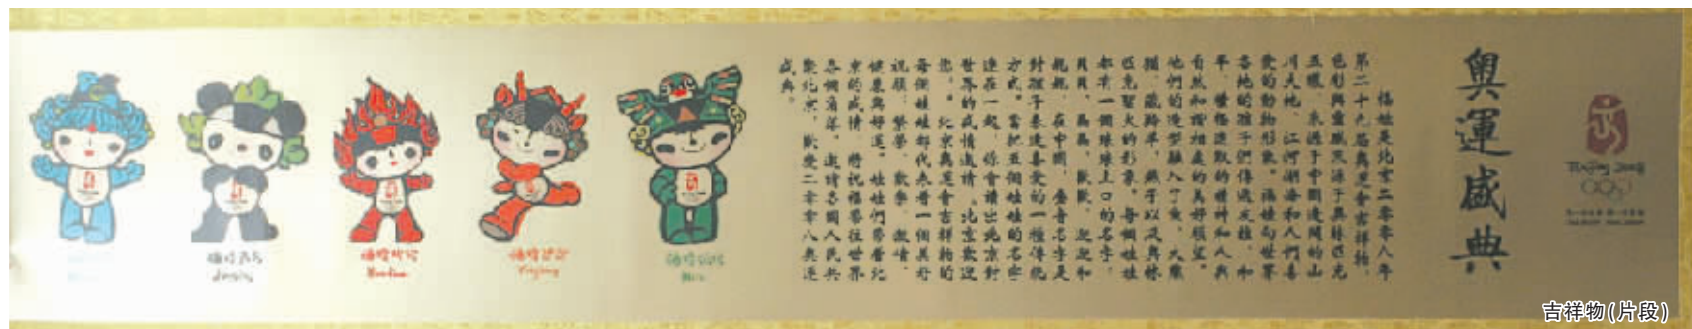 Beijing 2008
奧運盛典
福娃是北京二零零八年
第二十九屆奧運會吉祥物,
色彩與靈感來源于奧林匹克
五環、來源于中國遼闊的山
川大地、江河湖海和人們喜
愛的動物形象。福娃向世界
各地的孩子們傳遞友誼、和
平、積極進取的精神和人與
自然和諧相處的美好願望。
他們的造型融入了魚、大熊
貓、藏羚羊、燕子以及奧林
匹克聖火的形象。每個娃娃
都有一個琅琅上口的名字,
貝貝、晶晶、歡歡、迎迎和
妮妮,在中國,疊音名字是
對孩子表達喜愛的一種傳統
方式。當把五個娃娃的名字
連在一起,你會讀出北京對
世界的盛情邀請“北京歡迎
您”。北京奧運會吉祥物的
每個娃娃都代表着一個美好
祝願:繁榮、歡樂、激情、
健康與好運。娃娃們帶着北
京的盛情,將祝福帶往世界
各個角落,邀請各國人民共
聚北京,歡慶二零零八奧運
盛典。
福娃妮妮
Nini
福娃迎迎
Yingying
福娃欢欢
Huanhuan
福娃晶晶
Jingjing
吉祥物(片段)